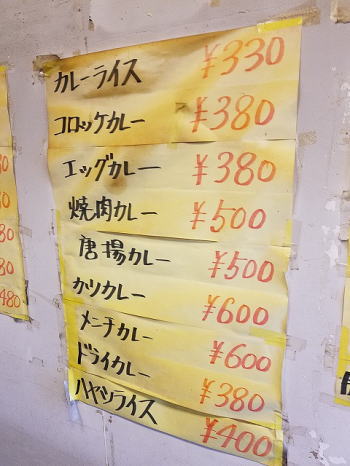 カレーライス ¥330
コロッケカレー ¥380
エッグカレー ¥380
焼肉カレー ¥500
唐揚カレー ¥500
カツカレー ¥600
メンチカレー ¥600
ドライカレー ¥380
ハヤシライス ¥400
80
80
80
480